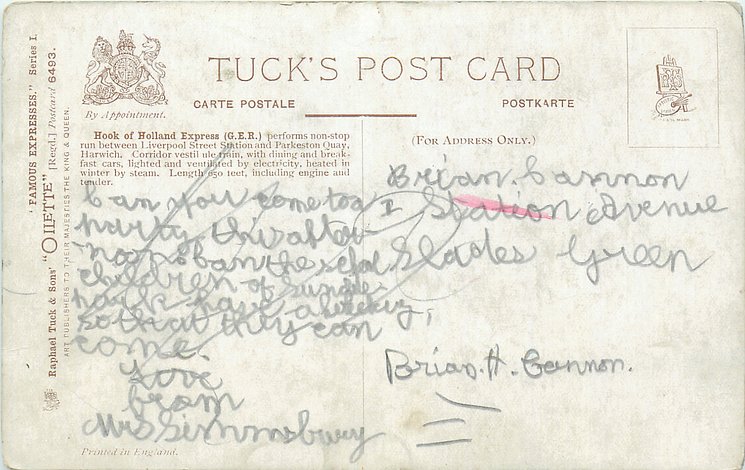 TUCK'S POST CARD
By Appointment.
CARTE POSTALE
POSTKARTE
Hook of Holland Express (G.E.R.) performs non-stop
run between Liverpool Street Station and Parkeston Quay,
Harwich. Corridor vestibule train, with dining and break-
fast cars, lighted and ventilated by electricity, heated in
winter by steam. Length 650 feet, including engine and
tender.
(FOR ADDRESS ONLY.)
"FAMOUS EXPRESSES." Series I.
Raphael Tuck & Sons' "OILETTE" [Regd.] Postcard 8493.
ART PUBLISHERS TO THEIR MAJESTIES THE KING & QUEEN.
Can you come to a
party this after-
noon
children of
have a
so that they can
come.
Love
from
Mrs Simmsbury
Brian. Cannon
1 Station Avenue
Slades Green
Brian. H. Cannon.
Printed in England.